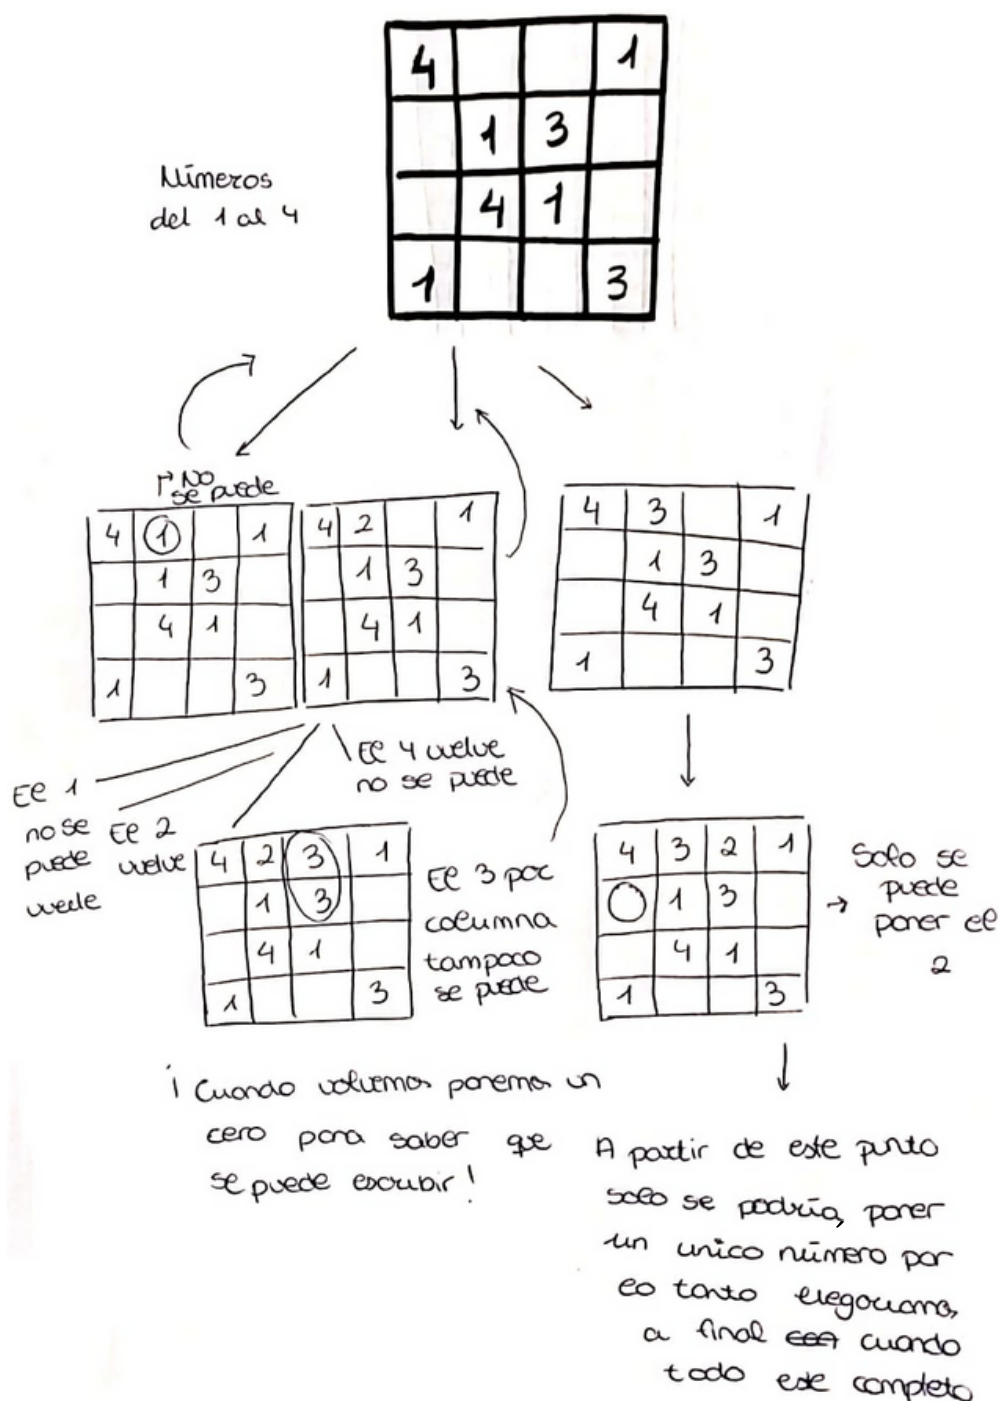 4 1
1 3
Números
del 1 al 4
4 1
1 3
No
se puede
4 1 1
1 3
4 1
1 3
4 2 1
1 3
4 1
1 3
4 3 1
1 3
4 1
1 3
El 1
no se
puede
vuelve
El 2
vuelve
El 4 vuelve
no se puede
4 2 3 1
1 3
4 1
1 3
El 3 por
columna
tampoco
se puede
4 3 2 1
1 3
4 1
1 3
Solo se
puede
poner el
2
¡Cuando volvemos ponemos un
cero para saber que
se puede escribir!
A partir de este punto
solo se podría, poner
un unico número por
lo tanto llegariamos,
a final cuando
todo este completo